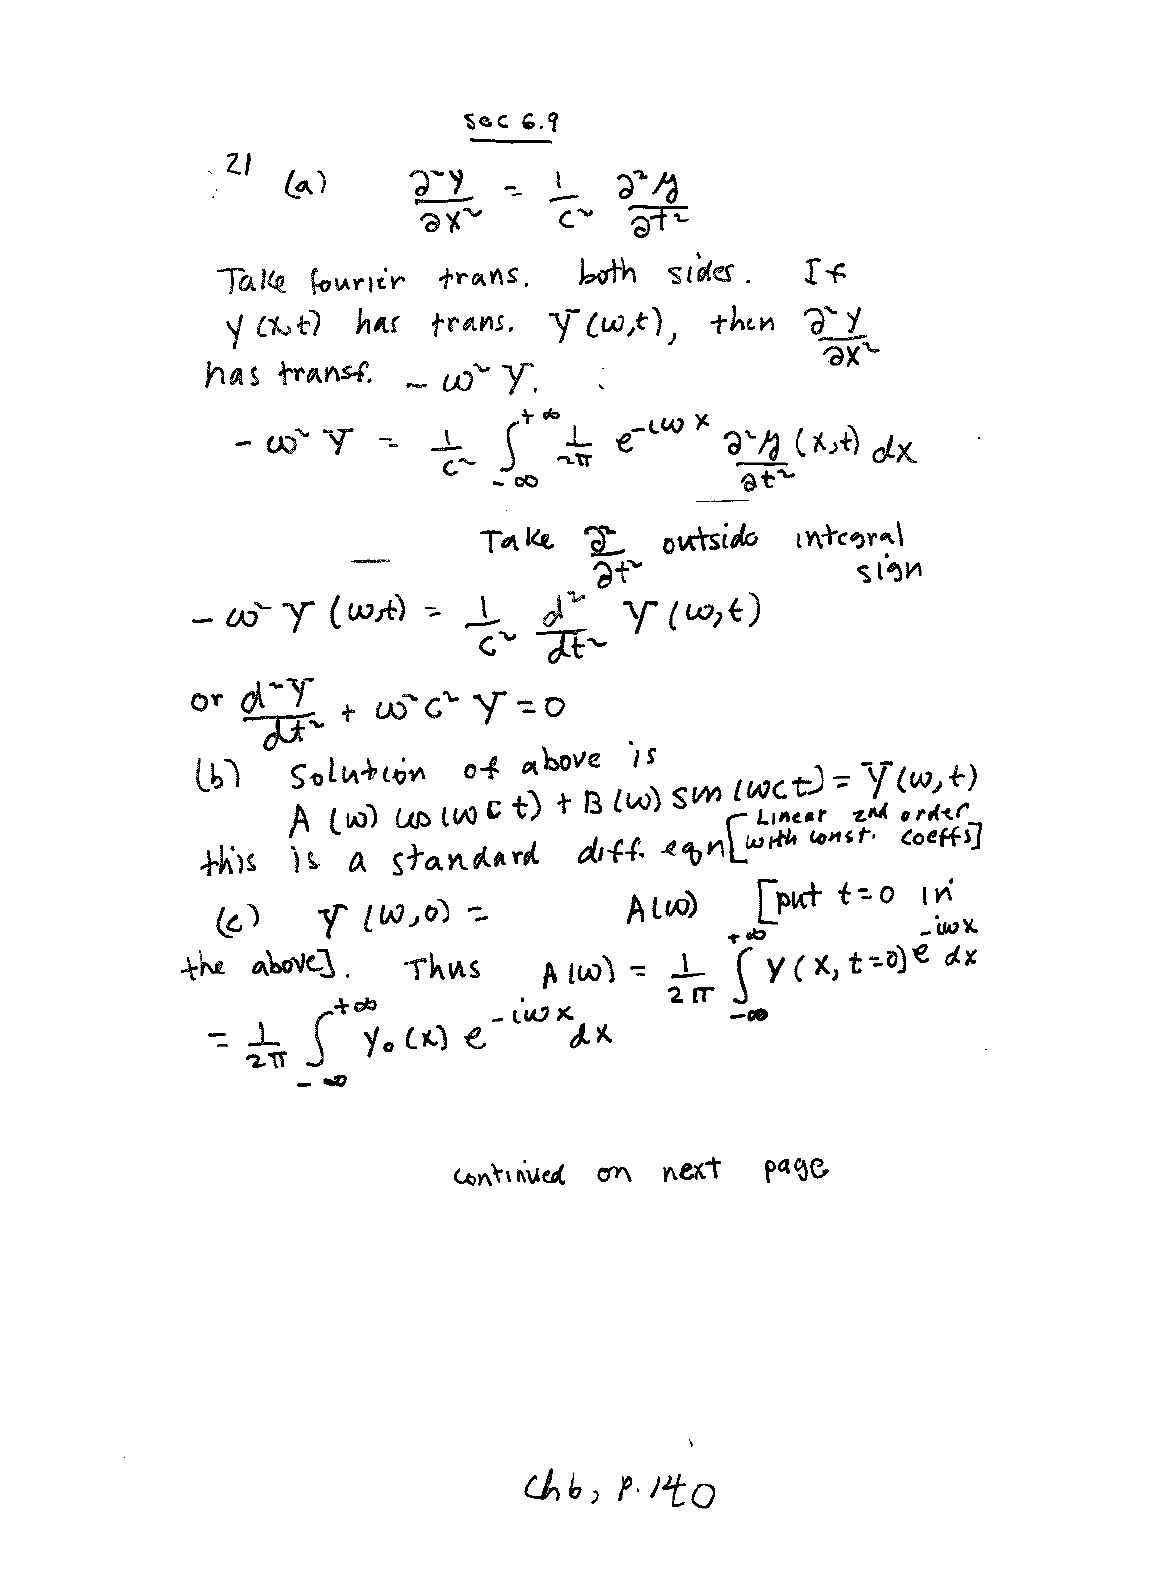 sec 6.9
21 (a) ∂²y/∂x² = 1/c² ∂²y/∂t²
Take fourier trans. both sides. If
y(x,t) has trans. Y(ω,t), then ∂²y/∂x²
has transf. -ω² Y.
-ω² Y = 1/c² ∫_{-∞}^{+∞} 1/2π e^{-iωx} ∂²y/∂t² (x,t) dx
Take ∂²/∂t² outside integral
sign
-ω² Y(ω,t) = 1/c² d²/dt² Y(ω,t)
or d²Y/dt² + ω²c² Y = 0
(b) Solution of above is
A(ω) cos(ωct) + B(ω) sin(ωct) = Y(ω,t)
this is a standard diff. eqn [Linear 2nd order
with const. coeffs]
(c) Y(ω,0) = A(ω) [put t=0 in
the above]. Thus A(ω) = 1/2π ∫_{-∞}^{+∞} y(x,t=0) e^{-iωx} dx
= 1/2π ∫_{-∞}^{+∞} y₀(x) e^{-iωx} dx
continued on next page
Ch6, p.140